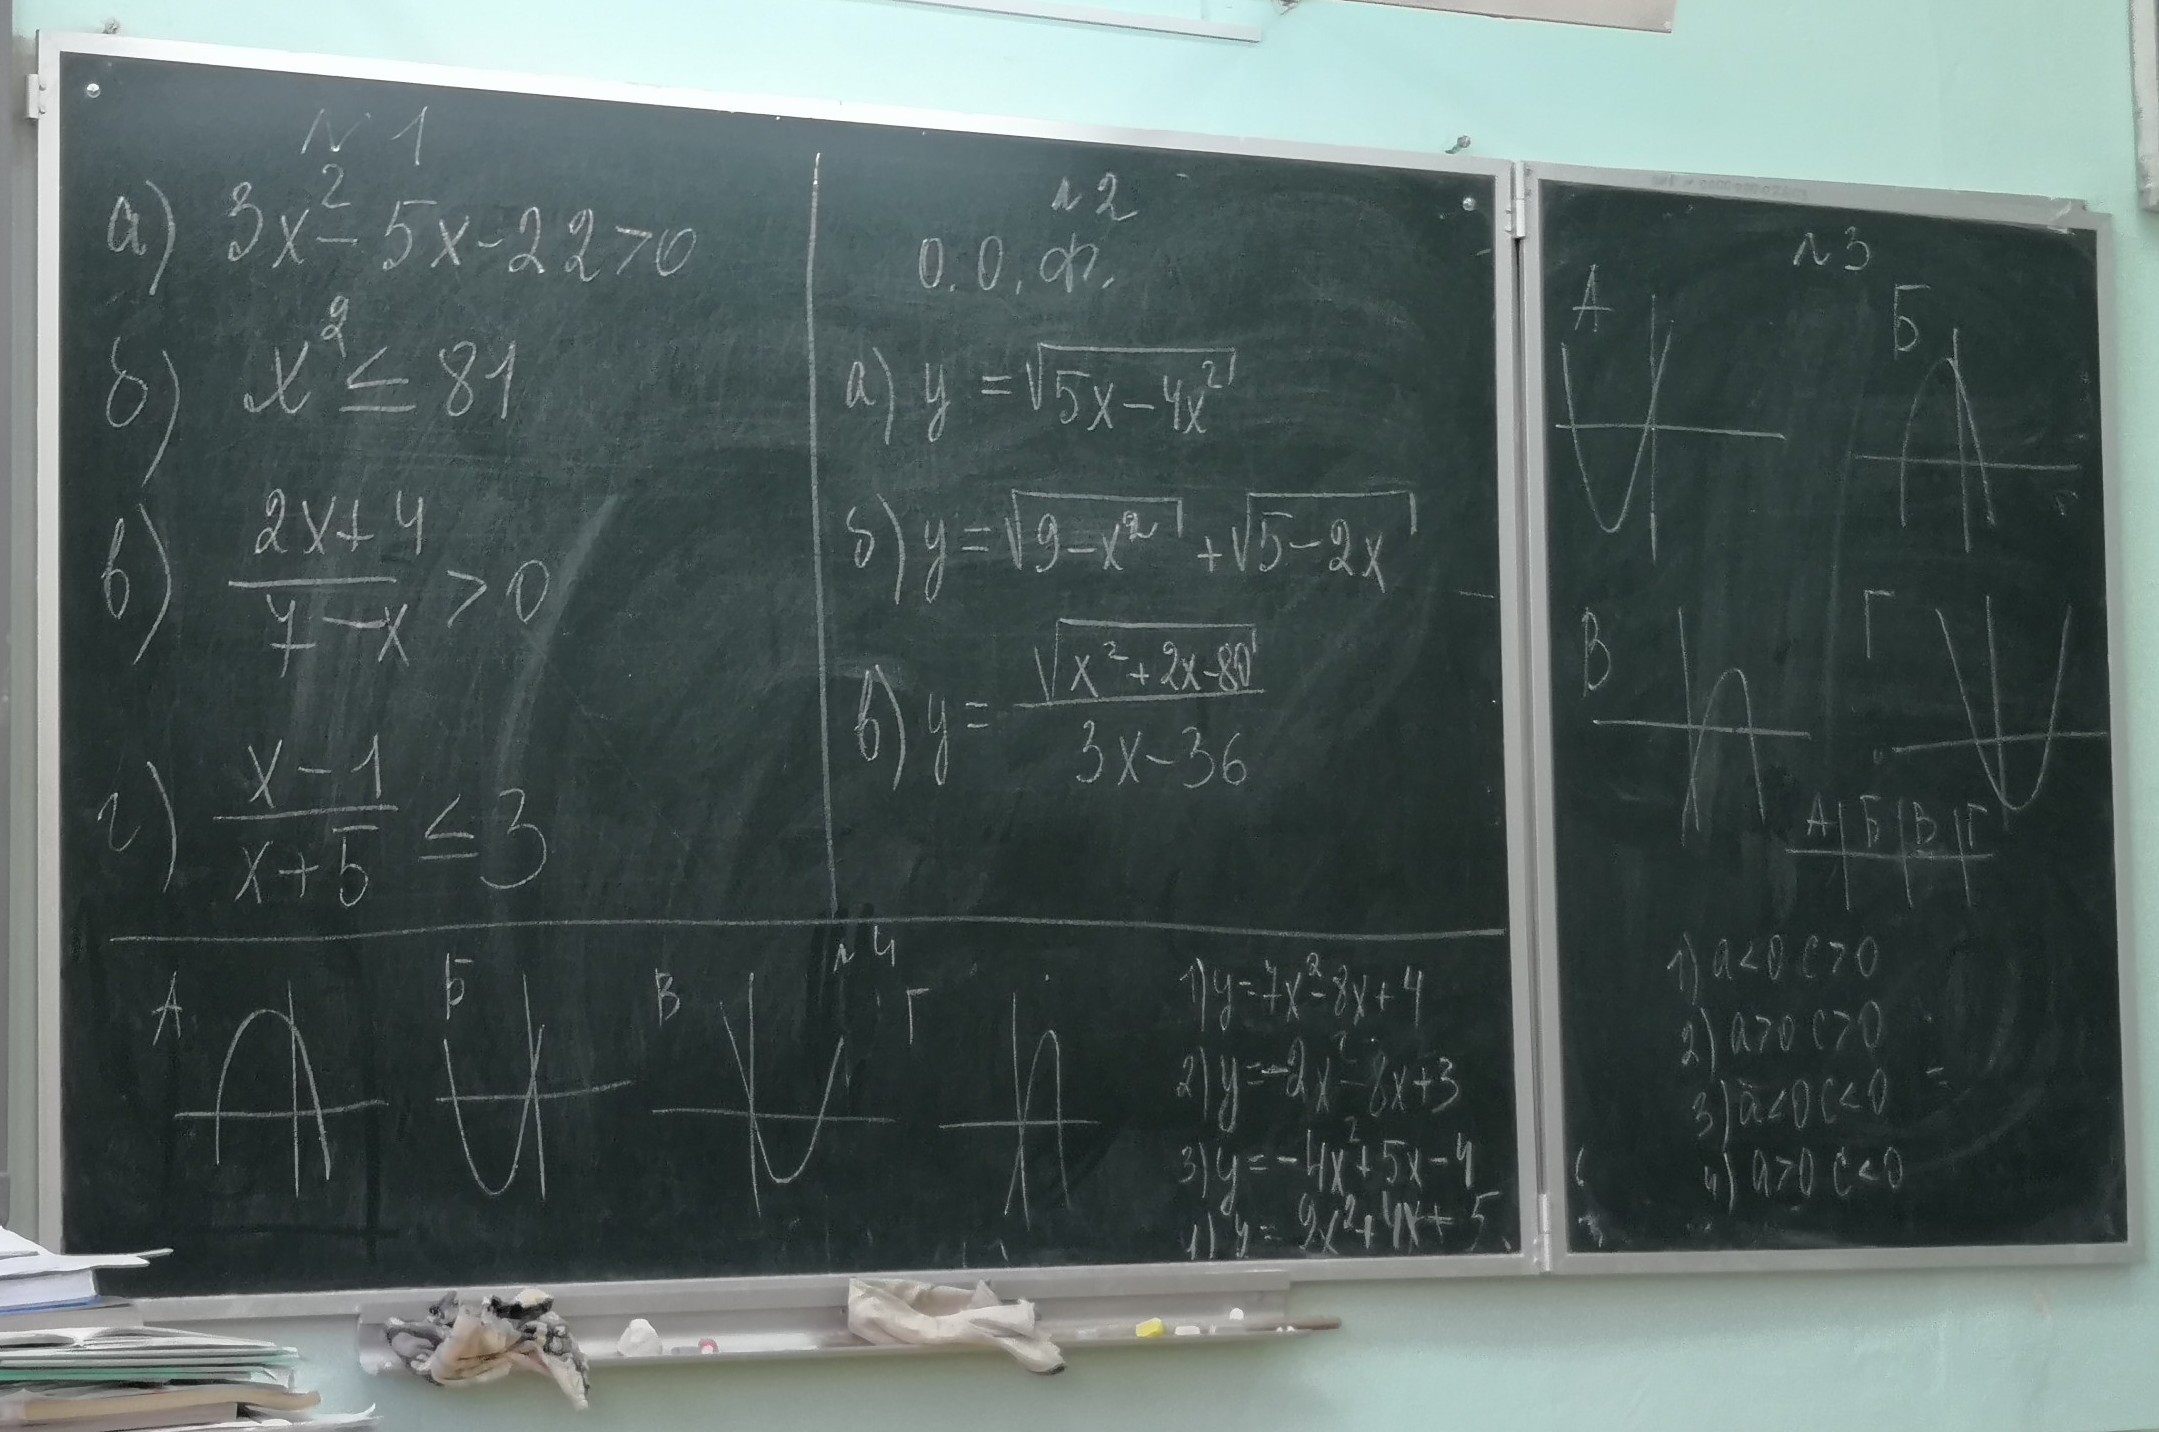 №1
а) 3x² - 5x - 22 > 0
б) x² ≤ 81
в) (2x+4)/(7-x) > 0
г) (x-1)/(x+5) ≤ 3
№2
О.О.Ф.
а) y = √(5x-4x²)
б) y = √(9-x²) + √(5-2x)
в) y = √(x²+2x-80)/(3x-36)
№3
А Б
В Г
А Б В Г
1) a<0 c>0
2) a>0 c>0
3) a<0 c<0
4) a>0 c<0
№4
А Б В Г
1) y=7x²-8x+4
2) y=-2x²-8x+3
3) y=-4x²+5x-4
4) y=9x²+4x+5